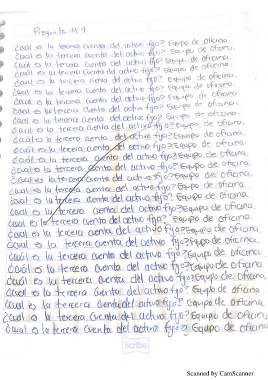 Pregunta # 4
¿Cuál es la tercera cuenta del activo fijo? Equipo de oficina.
¿Cuál es la tercera cuenta del activo fijo? Equipo de oficina.
¿Cuál es la tercera cuenta del activo fijo? Equipo de oficina.
¿Cuál es la tercera cuenta del activo fijo? Equipo de oficina.
¿Cuál es la tercera cuenta del activo fijo? Equipo de oficina.
¿Cuál es la tercera cuenta del activo fijo? Equipo de oficina.
¿Cuál es la tercera cuenta del activo fijo? Equipo de oficina.
¿Cuál es la tercera cuenta del activo fijo? Equipo de oficina.
¿Cuál es la tercera cuenta del activo fijo? Equipo de oficina.
¿Cuál es la tercera cuenta del activo fijo? Equipo de oficina.
¿Cuál es la tercera cuenta del activo fijo? Equipo de oficina.
¿Cuál es la tercera cuenta del activo fijo? Equipo de oficina.
¿Cuál es la tercera cuenta del activo fijo? Equipo de oficina.
¿Cuál es la tercera cuenta del activo fijo? Equipo de oficina.
¿Cuál es la tercera cuenta del activo fijo? Equipo de oficina.
¿Cuál es la tercera cuenta del activo fijo? Equipo de oficina.
¿Cuál es la tercera cuenta del activo fijo? Equipo de oficina.
¿Cuál es la tercera cuenta del activo fijo? Equipo de oficina.
¿Cuál es la tercera cuenta del activo fijo? Equipo de oficina.
¿Cuál es la tercera cuenta del activo fijo? Equipo de oficina.
¿Cuál es la tercera cuenta del activo fijo? Equipo de oficina.
¿Cuál es la tercera cuenta del activo fijo? Equipo de oficina.
¿Cuál es la tercera cuenta del activo fijo? Equipo de oficina.
¿Cuál es la tercera cuenta del activo fijo? Equipo de oficina.
¿Cuál es la tercera cuenta del activo fijo? Equipo de oficina.
Scribe
Scanned by CamScanner